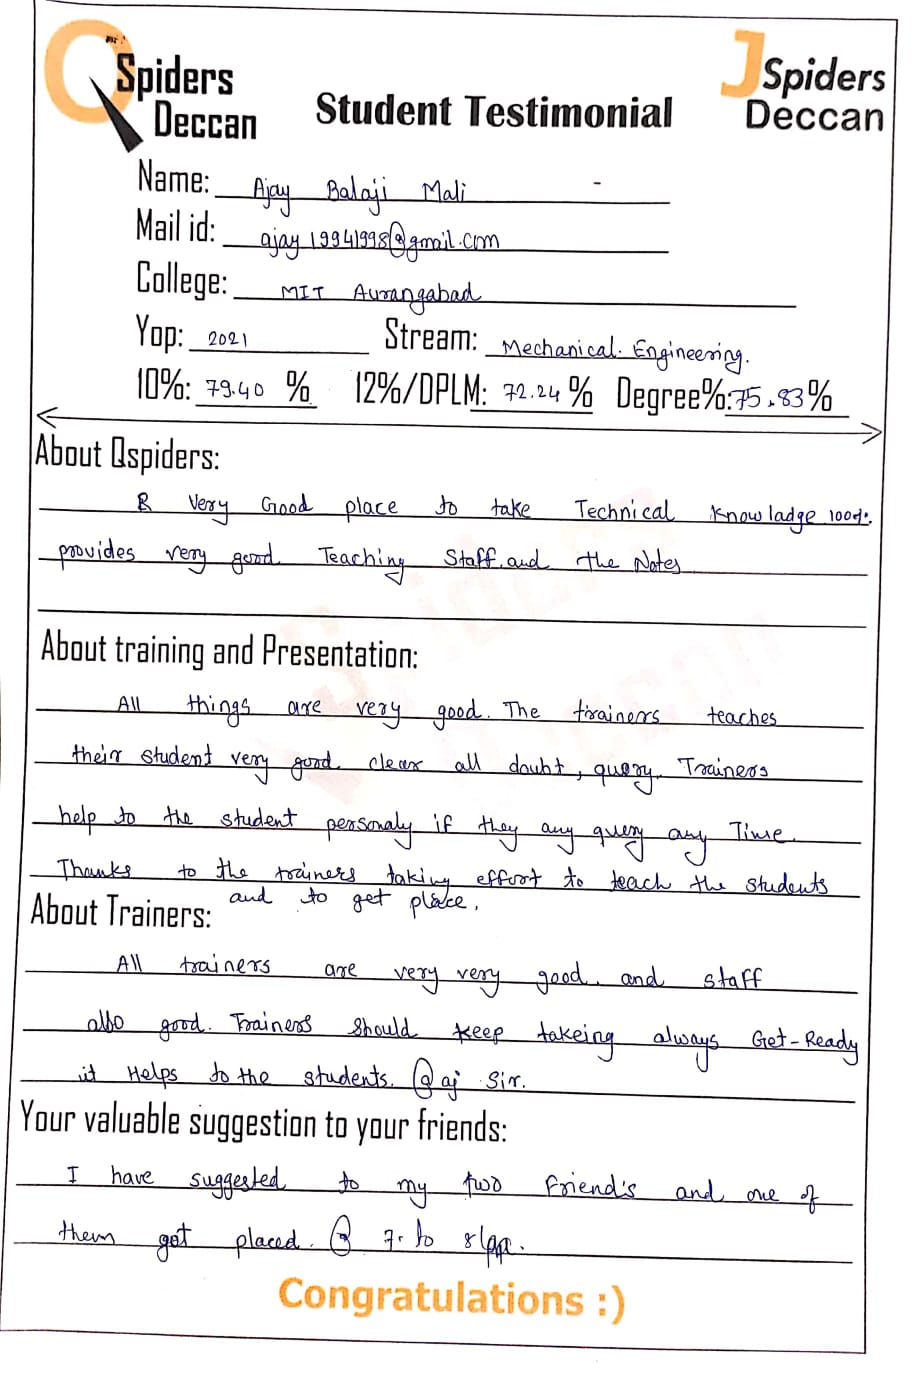 QSpiders
Deccan
Student Testimonial
JSpiders
Deccan
Name: Ajay Balaji Mali -
Mail id: ajay19941998@gmail.com
College: MIT Aurangabad
Yop: 2021 Stream: Mechanical. Engineering.
10%: 79.40 % 12%/DPLM: 72.24 % Degree%: 75.83 %
About Qspiders:
Very Good place to take Technical Knowladge 100%.
provides very good Teaching Staff. and the Notes
About training and Presentation:
All things are very good. The trainers teaches
their student very good. clear all doubt, query. Trainers
help to the student personaly if they any query any Time.
Thanks to the trainers taking effort to teach the students
and to get place.
About Trainers:
All trainers are very very good. and staff
also good. Trainers should keep takeing always Get-Ready
it Helps to the students. @aj Sir.
Your valuable suggestion to your friends:
I have suggested to my two Friend's and one of
them got placed. @ 7. to 8
Congratulations :)